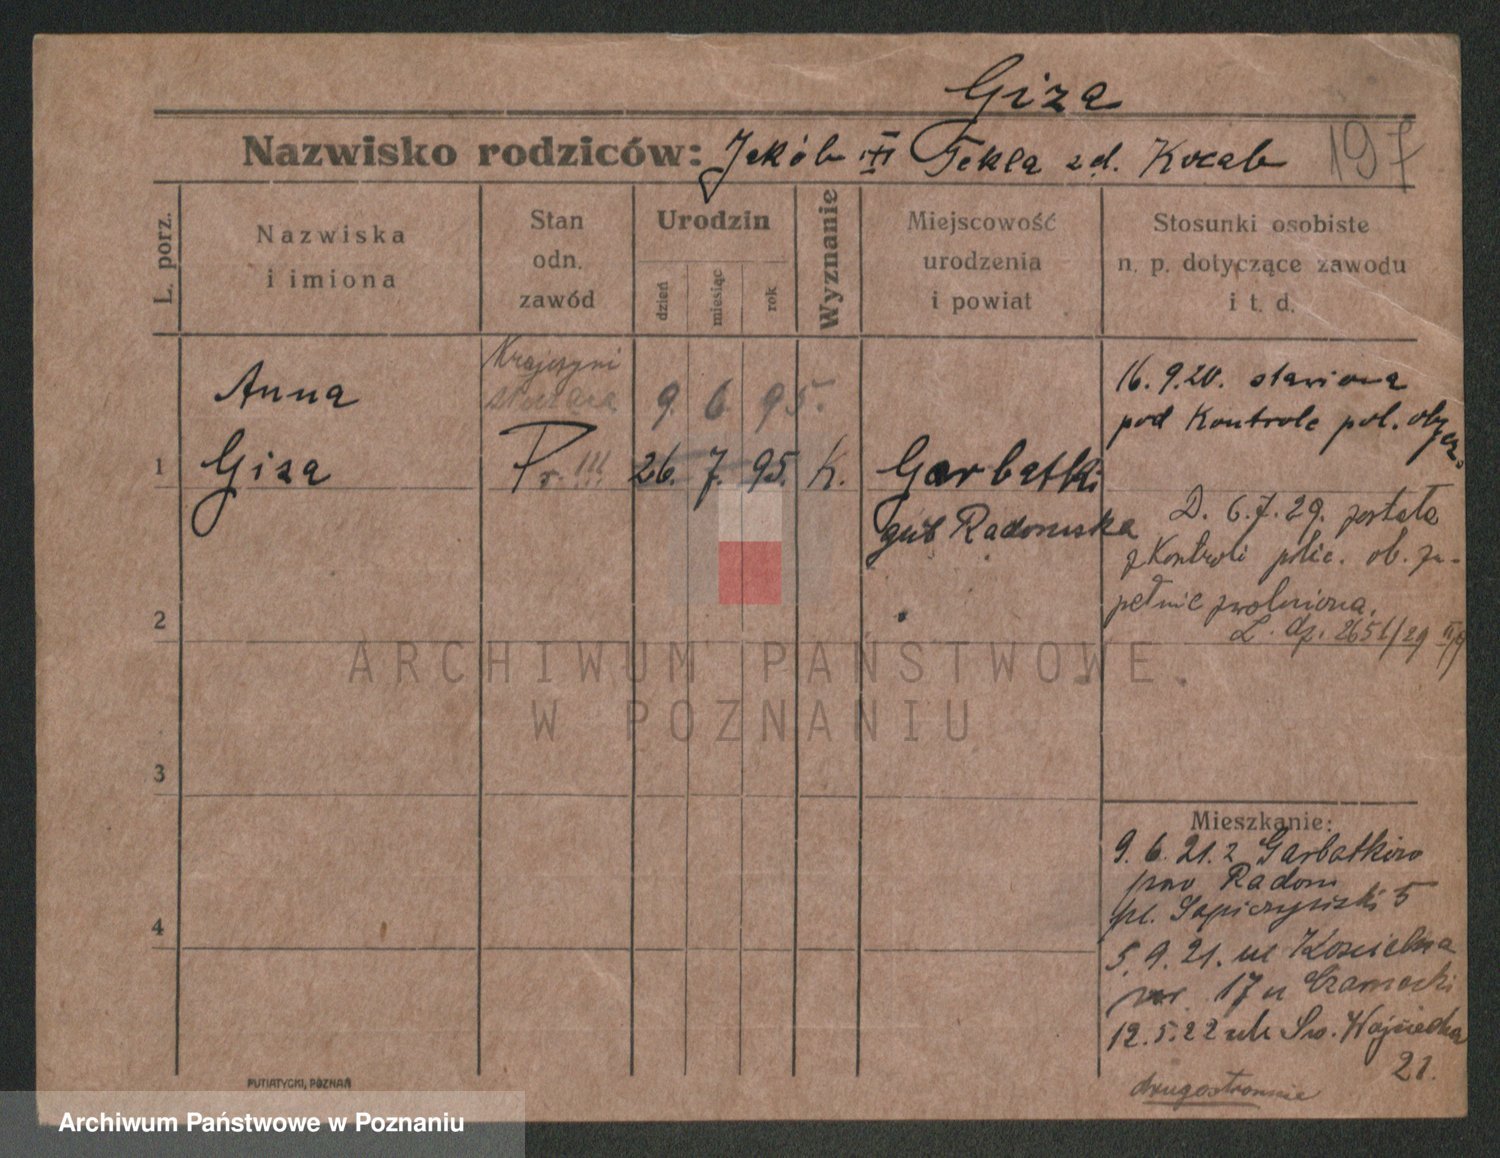 Giza
Nazwisko rodziców: Jakób Tekla zd. Kocab
197
L. porz.
Nazwiska
i imiona
Stan
odn.
zawód
Urodzin
dzień
miesiąc
rok
Wyznanie
Miejscowość
urodzenia
i powiat
Stosunki osobiste
n. p. dotyczące zawodu
i t. d.
Anna
9. 6. 95.
16. 9. 20. stawiona
pod Kontrole pol. obycz.
1 Giza
Pr. !!! 26. 7. 95. K. Garbatki
gub Radomska
D. 6.7.29. została
z Kontroli polic. ob. zu-
pełnie zwolniona.
L. dz. 2651/29
2
ARCHIWUM PAŃSTWOWE
W POZNANIU
3
Mieszkanie:
9. 6. 21. z Garbatkiro
pow Radom
pl. Sapieżyński 5
4
5. 9. 21. ul Kościelna
17 u
12. 5. 22 ul. Św. Wojciecha
21.
drugostronnie
PUTIATYCKI, POZNAŃ
Archiwum Państwowe w Poznaniu